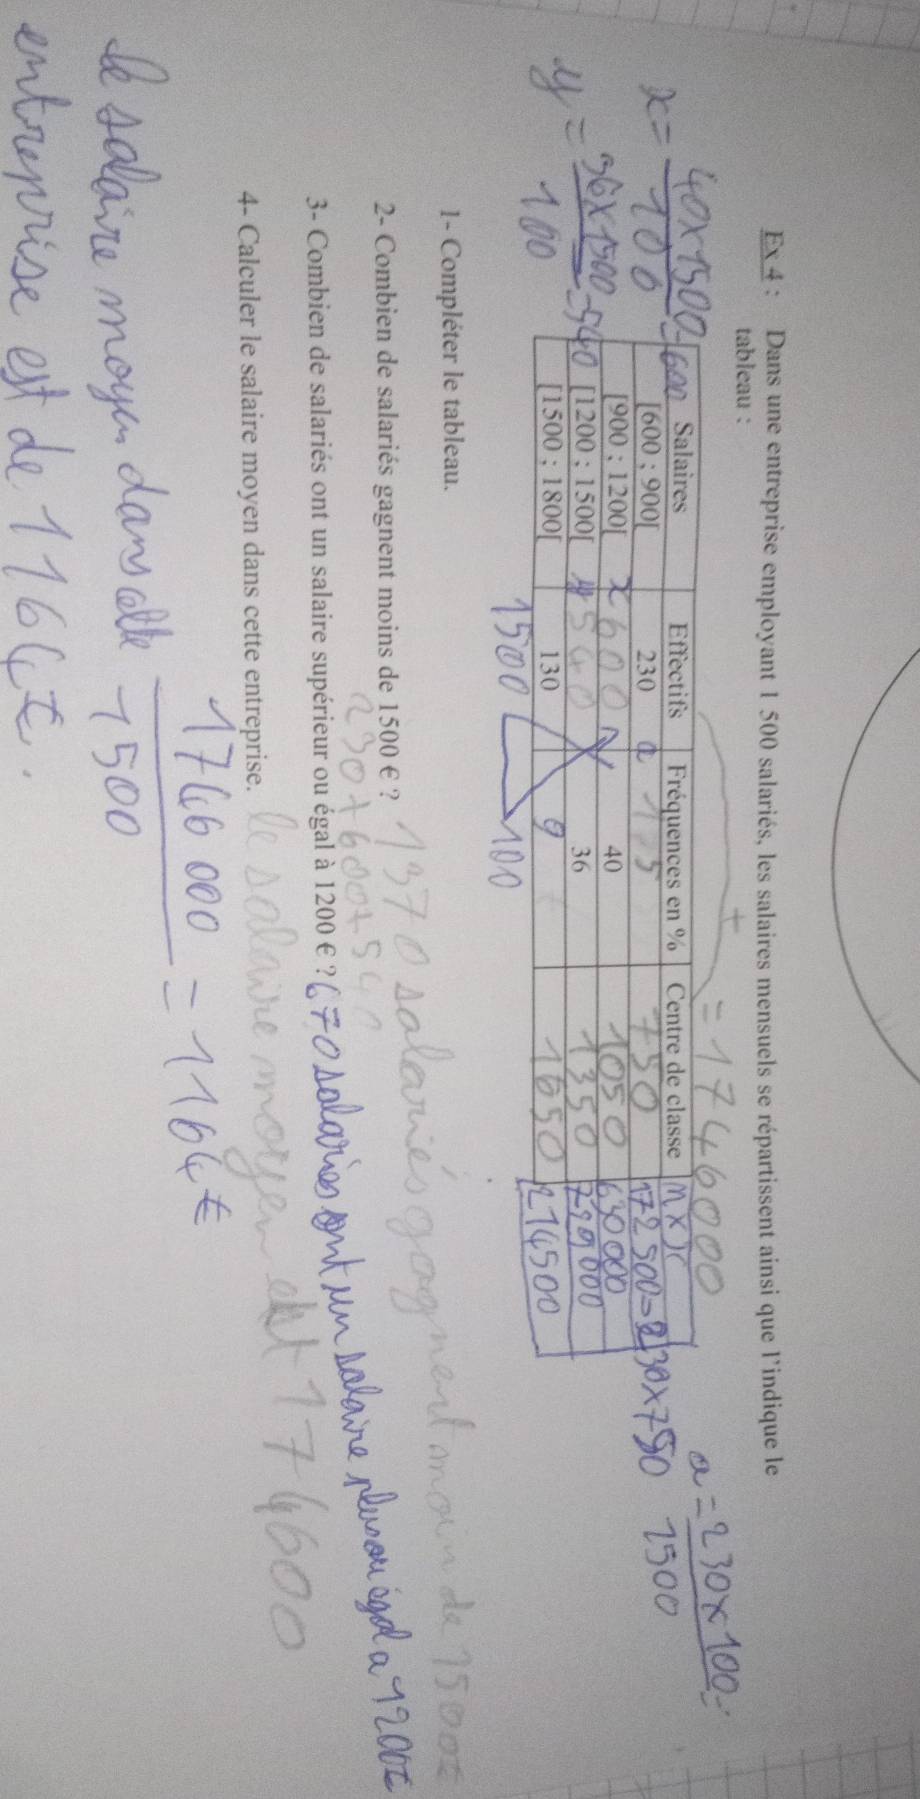 = 1746000
a = 230 x 100 =
1500
Ex 4 : Dans une entreprise employant 1 500 salariés, les salaires mensuels se répartissent ainsi que l'indique le
tableau :
x = 40x1500 = 600
100
y = 36x1500 = 540
100
Salaires Effectifs Fréquences en % Centre de classe n x x
[600 ; 900[ 230 a 750 172500 = 230x750
[900 ; 1200[ x 600 40 1050 630000
[1200 ; 1500[ y 540 36 1350 729000
[1500 ; 1800[ 130 9 1650 214500
1500 100
1- Compléter le tableau.
2- Combien de salariés gagnent moins de 1500 € ? 1370 salariés gagnent moin de 1500€
230+600+540
3- Combien de salariés ont un salaire supérieur ou égal à 1200 € ? 670 salaries ont un salaire plus ou égal a 1200€
4- Calculer le salaire moyen dans cette entreprise. le salaire moyen est 174600
1746 000 = 1164€
1500
le salaire moyen dans cette
entreprise est de 1164€.